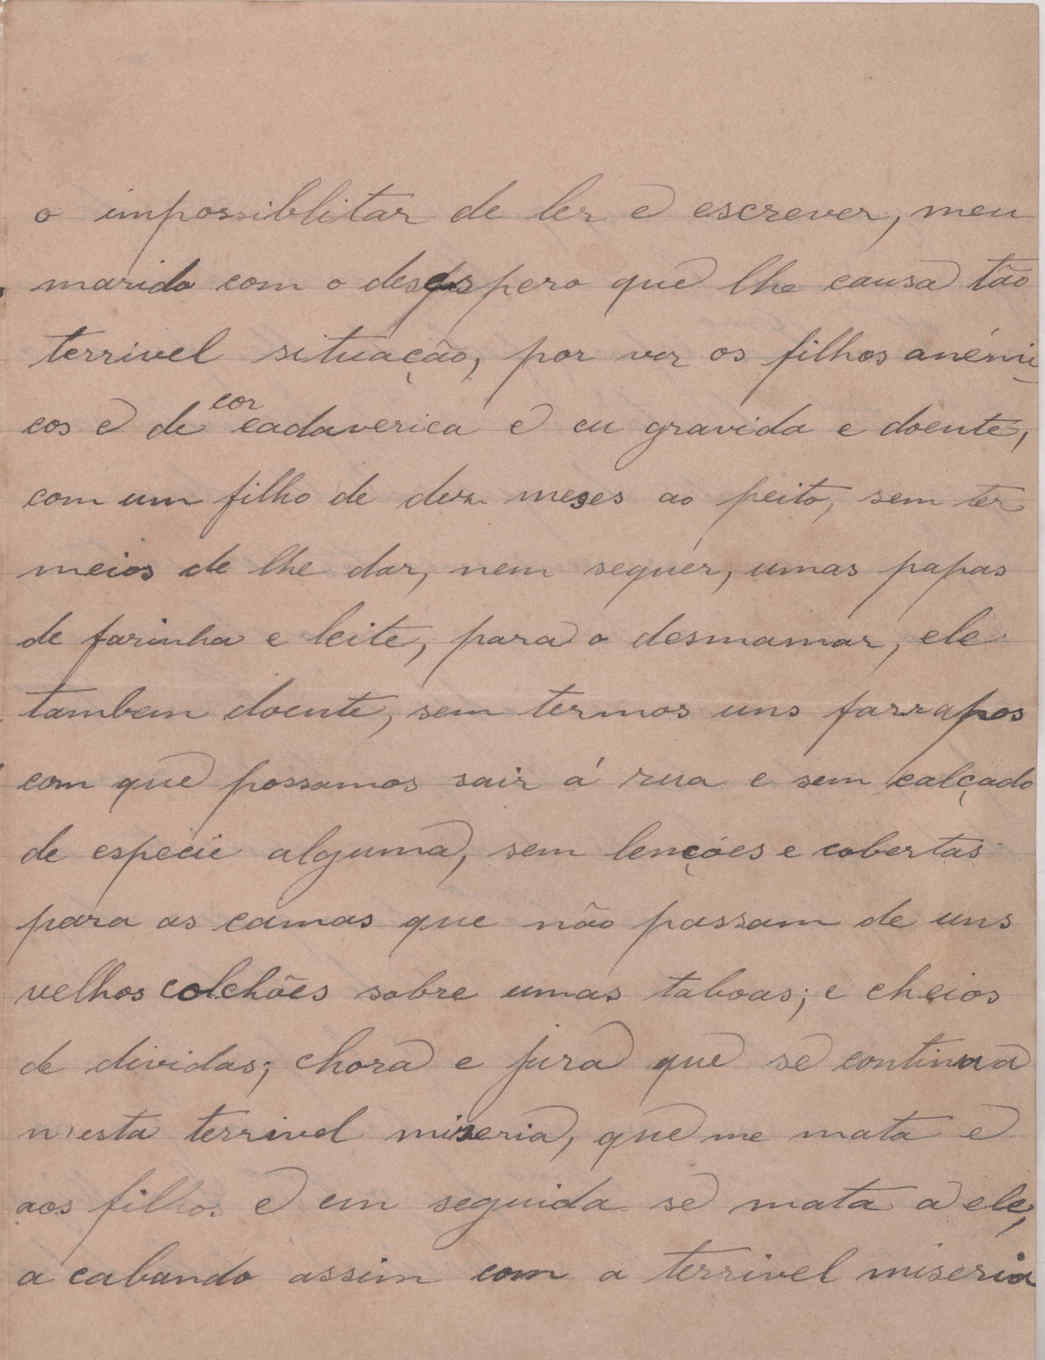 o impossiblitar de ler e escrever, meu
marido com o desespero que lhe causa tão
terrivel situação, por ver os filhos anémi
cos e de cor cadaverica e eu gravida e doente,
com um filho de dez meses ao peito, sem ter
meios de lhe dar, nem sequer, umas papas
de farinha e leite, para o desmamar, ele
tambem doente, sem termos uns farrapos
com que possamos sair á rua e sem calçado
de especie alguma, sem lençóes e cobertas
para as camas que não passam de uns
velhos colchões sobre umas taboas; e cheios
de dividas; chora e jura que se continua a
n'esta terrivel miseria, que me mata e
aos filhos e em seguida se mata a ele,
a cabando assim com a terrivel miseria